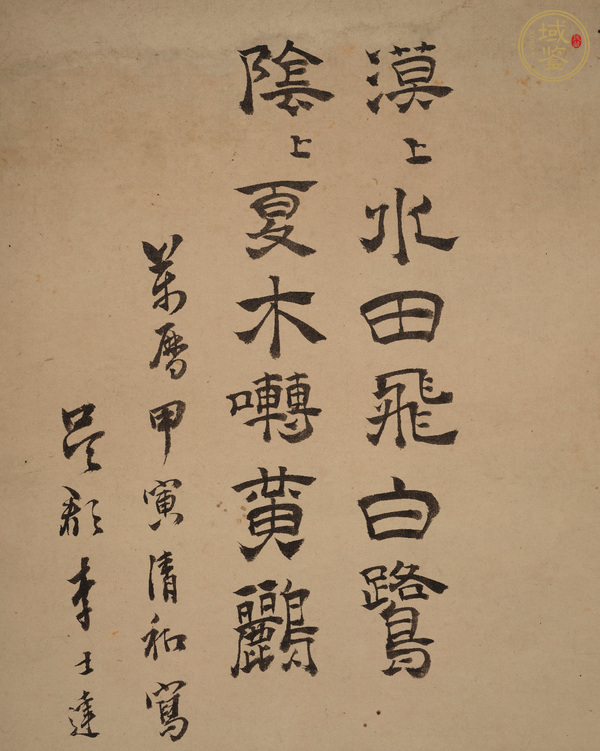 漠〻水田飛白鷺
陰〻夏木囀黄鸝
萬曆甲寅清和寫
吳郡李士達
域鑒